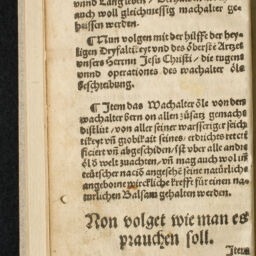 vnnd Langleben / 
auch woll gleichmessig machalter ge-
heissen werden.
¶ Nun volgen mit der hilffe der hey-
ligen Dryfaltikeyt vnd des öberste Artzes
vnsers Herrnn Jesu Christi / die tugent
vnnd operationes des wachalter öls
Beschribung.
¶ Item das Wachalter öle von den
wachalter bern on allen zusatz gemachs
distlüt / von aller seiner wasseriger feich
tikeyt vñ grobikait seines / erdrichs reteri
ficiert vñ abgescheiden / ist vber alle andre
öl d welt zuachten / vñ mag auch wol in
teütscher naciō angesehē seine natürliche
angeborne wirckliche krefft für einen na-
türlichen Balsam gehalten werden.
Non volget wie man es
prauchen soll.
Item